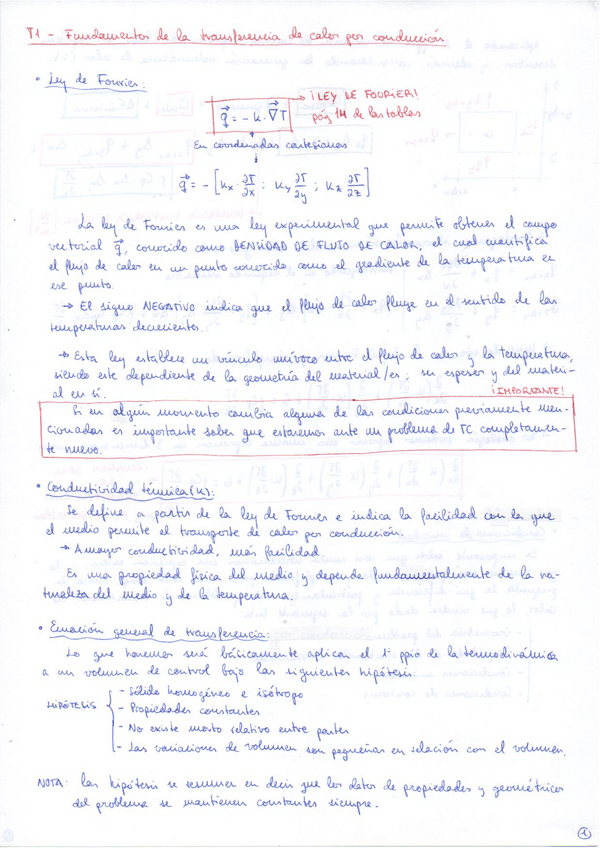 T1 - Fundamentos de la transferencia de calor por conducción
• Ley de Fourier:
q⃗ = -k·∇⃗T → ¡LEY DE FOURIER!
pág 114 de las tablas
En coordenadas cartesianas
q⃗ = -[kx·∂T/∂x ; ky ∂T/∂y ; kz ∂T/∂z]
La ley de Fourier es una ley experimental que permite obtener el campo
vectorial q⃗, conocido como DENSIDAD DE FLUJO DE CALOR, el cual cuantifica
el flujo de calor en un punto conocido como el gradiente de la temperatura en
ese punto.
→ El signo NEGATIVO indica que el flujo de calor fluye en el sentido de las
temperaturas decreciento.
→ Esta ley establece un vínculo unívoco entre el flujo de calor y la temperatura,
siendo este dependiente de la geometría del material/es, su espesor y del materi-
al en sí.
¡IMPORTANTE!
Si en algún momento cambia alguna de las condiciones previamente men-
cionadas es importante saber que estaremos ante un problema de TC completamen-
te nuevo.
• Conductividad térmica (k):
Se define a partir de la ley de Fourier e indica la facilidad con la que
el medio permite el transporte de calor por conducción.
→ A mayor conductividad, más facilidad
Es una propiedad física del medio y depende fundamentalmente de la na-
turaleza del medio y de la temperatura.
• Ecuación general de transferencia:
Lo que haremos será básicamente aplicar el 1er ppio de la termodinámica
a un volumen de control bajo las siguientes hipótesis:
HIPÓTESIS
- Sólido homogéneo e isótropo
- Propiedades constantes
- No existe movto relativo entre partes
- Las variaciones de volumen son pequeñas en relación con el volumen.
NOTA: las hipótesis se resumen en decir que los datos de propiedades y geométricos
del problema se mantienen constantes siempre.
1